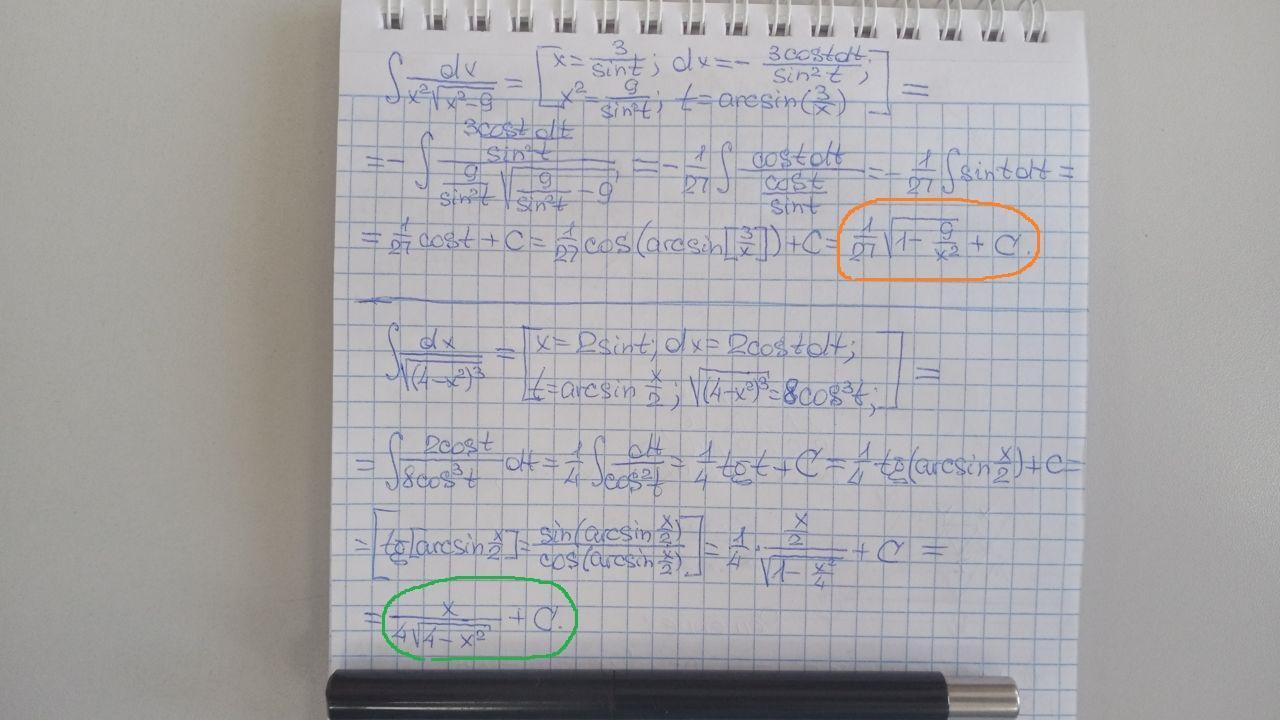 ∫ dx/(x²√(x²-9)) = [x = 3/sint; dx = - 3costdt/sin²t;
x² = 9/sin²t; t = arcsin(3/x)] =
= - ∫ (3cost dt/sin²t)/((9/sin²t)√(9/sin²t - 9)) = - 1/27 ∫ costdt/(cost/sint) = - 1/27 ∫ sintdt =
= 1/27 cost + C = 1/27 cos(arcsin[3/x]) + C = 1/27 √(1 - 9/x²) + C.
∫ dx/√((4-x²)³) = [x = 2sint; dx = 2costdt;
t = arcsin x/2; √((4-x²)³) = 8cos³t;] =
= ∫ 2cost/(8cos³t) dt = 1/4 ∫ dt/cos²t = 1/4 tgt + C = 1/4 tg(arcsin x/2) + C =
= [tg[arcsin x/2] = sin(arcsin x/2)/cos(arcsin x/2)] = 1/4 · (x/2)/√(1 - x²/4) + C =
= x/(4√(4-x²)) + C.